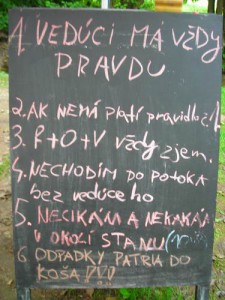 1. VEDÚCI MÁ VŽDY
PRAVDU
2. AK NEMÁ PLATÍ PRAVIDLO Č.1
3. R+O+V vždy zjem.
4. NECHODÍM DO POTOKA
bez vedúceho
5. NECIKÁM A NEKAKÁM
V OKOLÍ STANU
6 ODPADKY PATRIA DO
KOŠA